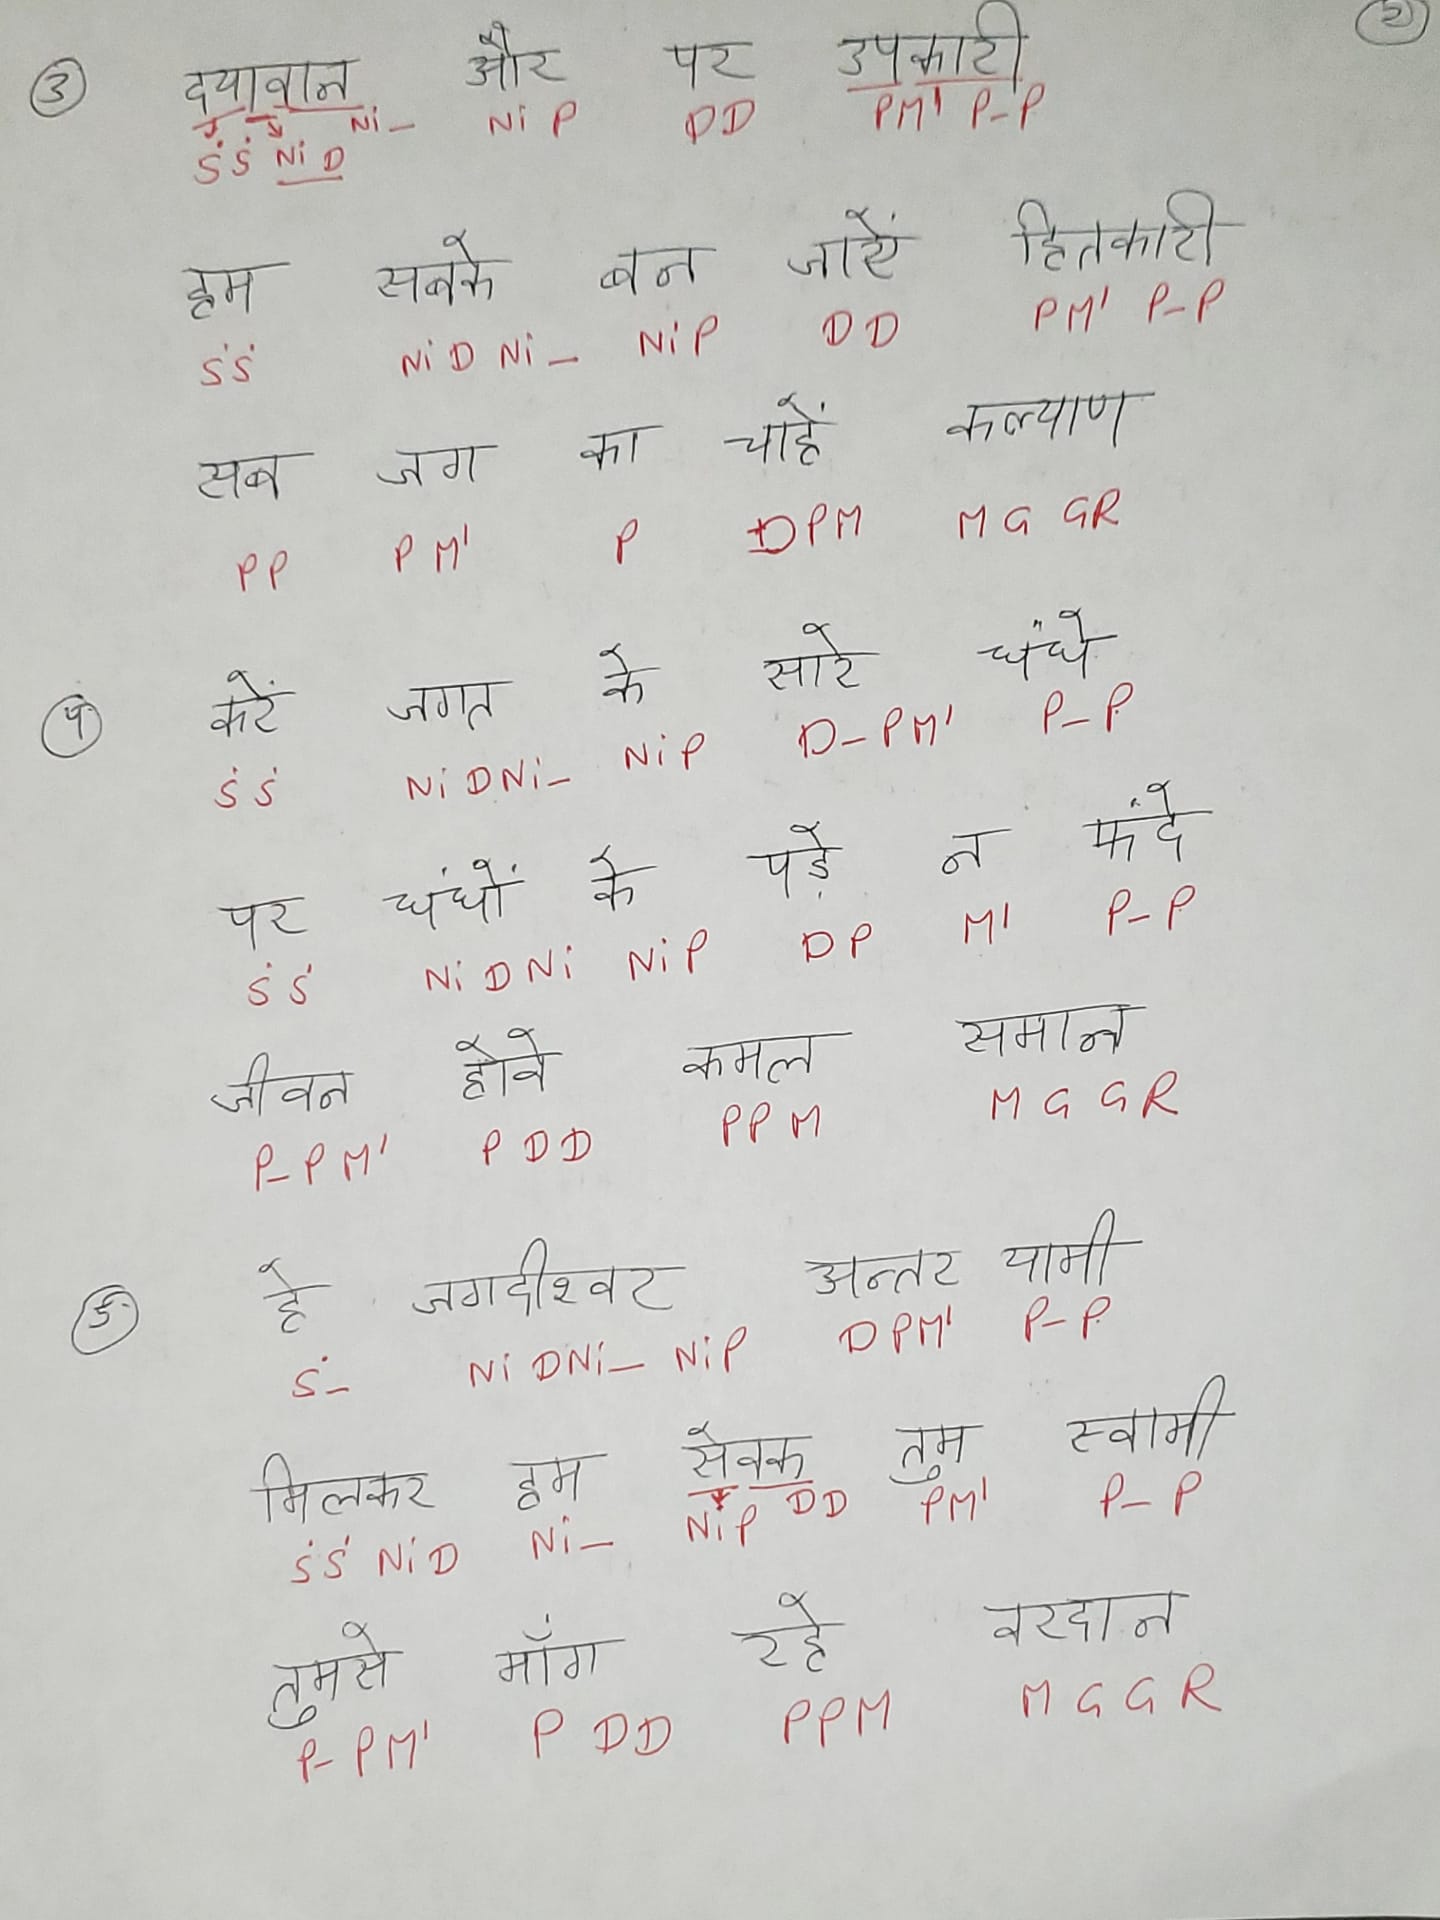 २
३ दयावान और पर उपकारी
Ni – Ni P D D P M' P – P
Ṡ Ṡ Ni D
हम सबके बन जाएें हितकारी
Ṡ Ṡ Ni D Ni – Ni P D D P M' P – P
सब जग का चाहें कल्याण
P P P M' P D P M M G G R
४ करें जगत के सारे धंधे
Ṡ Ṡ Ni D Ni – Ni P D – P M' P – P
पर धंधों के पड़े न फंदे
Ṡ Ṡ Ni D Ni Ni P D P M' P – P
जीवन होवे कमल समान
P – P M' P D D P P M M G G R
५ हे जगदीश्वर अन्तर यामी
Ṡ – Ni D Ni – Ni P D P M' P – P
मिलकर हम सेवक तुम स्वामी
Ṡ Ṡ Ni D Ni – Ni P D D P M' P – P
तुमसे माँग रहे वरदान
P – P M' P D D P P M M G G R